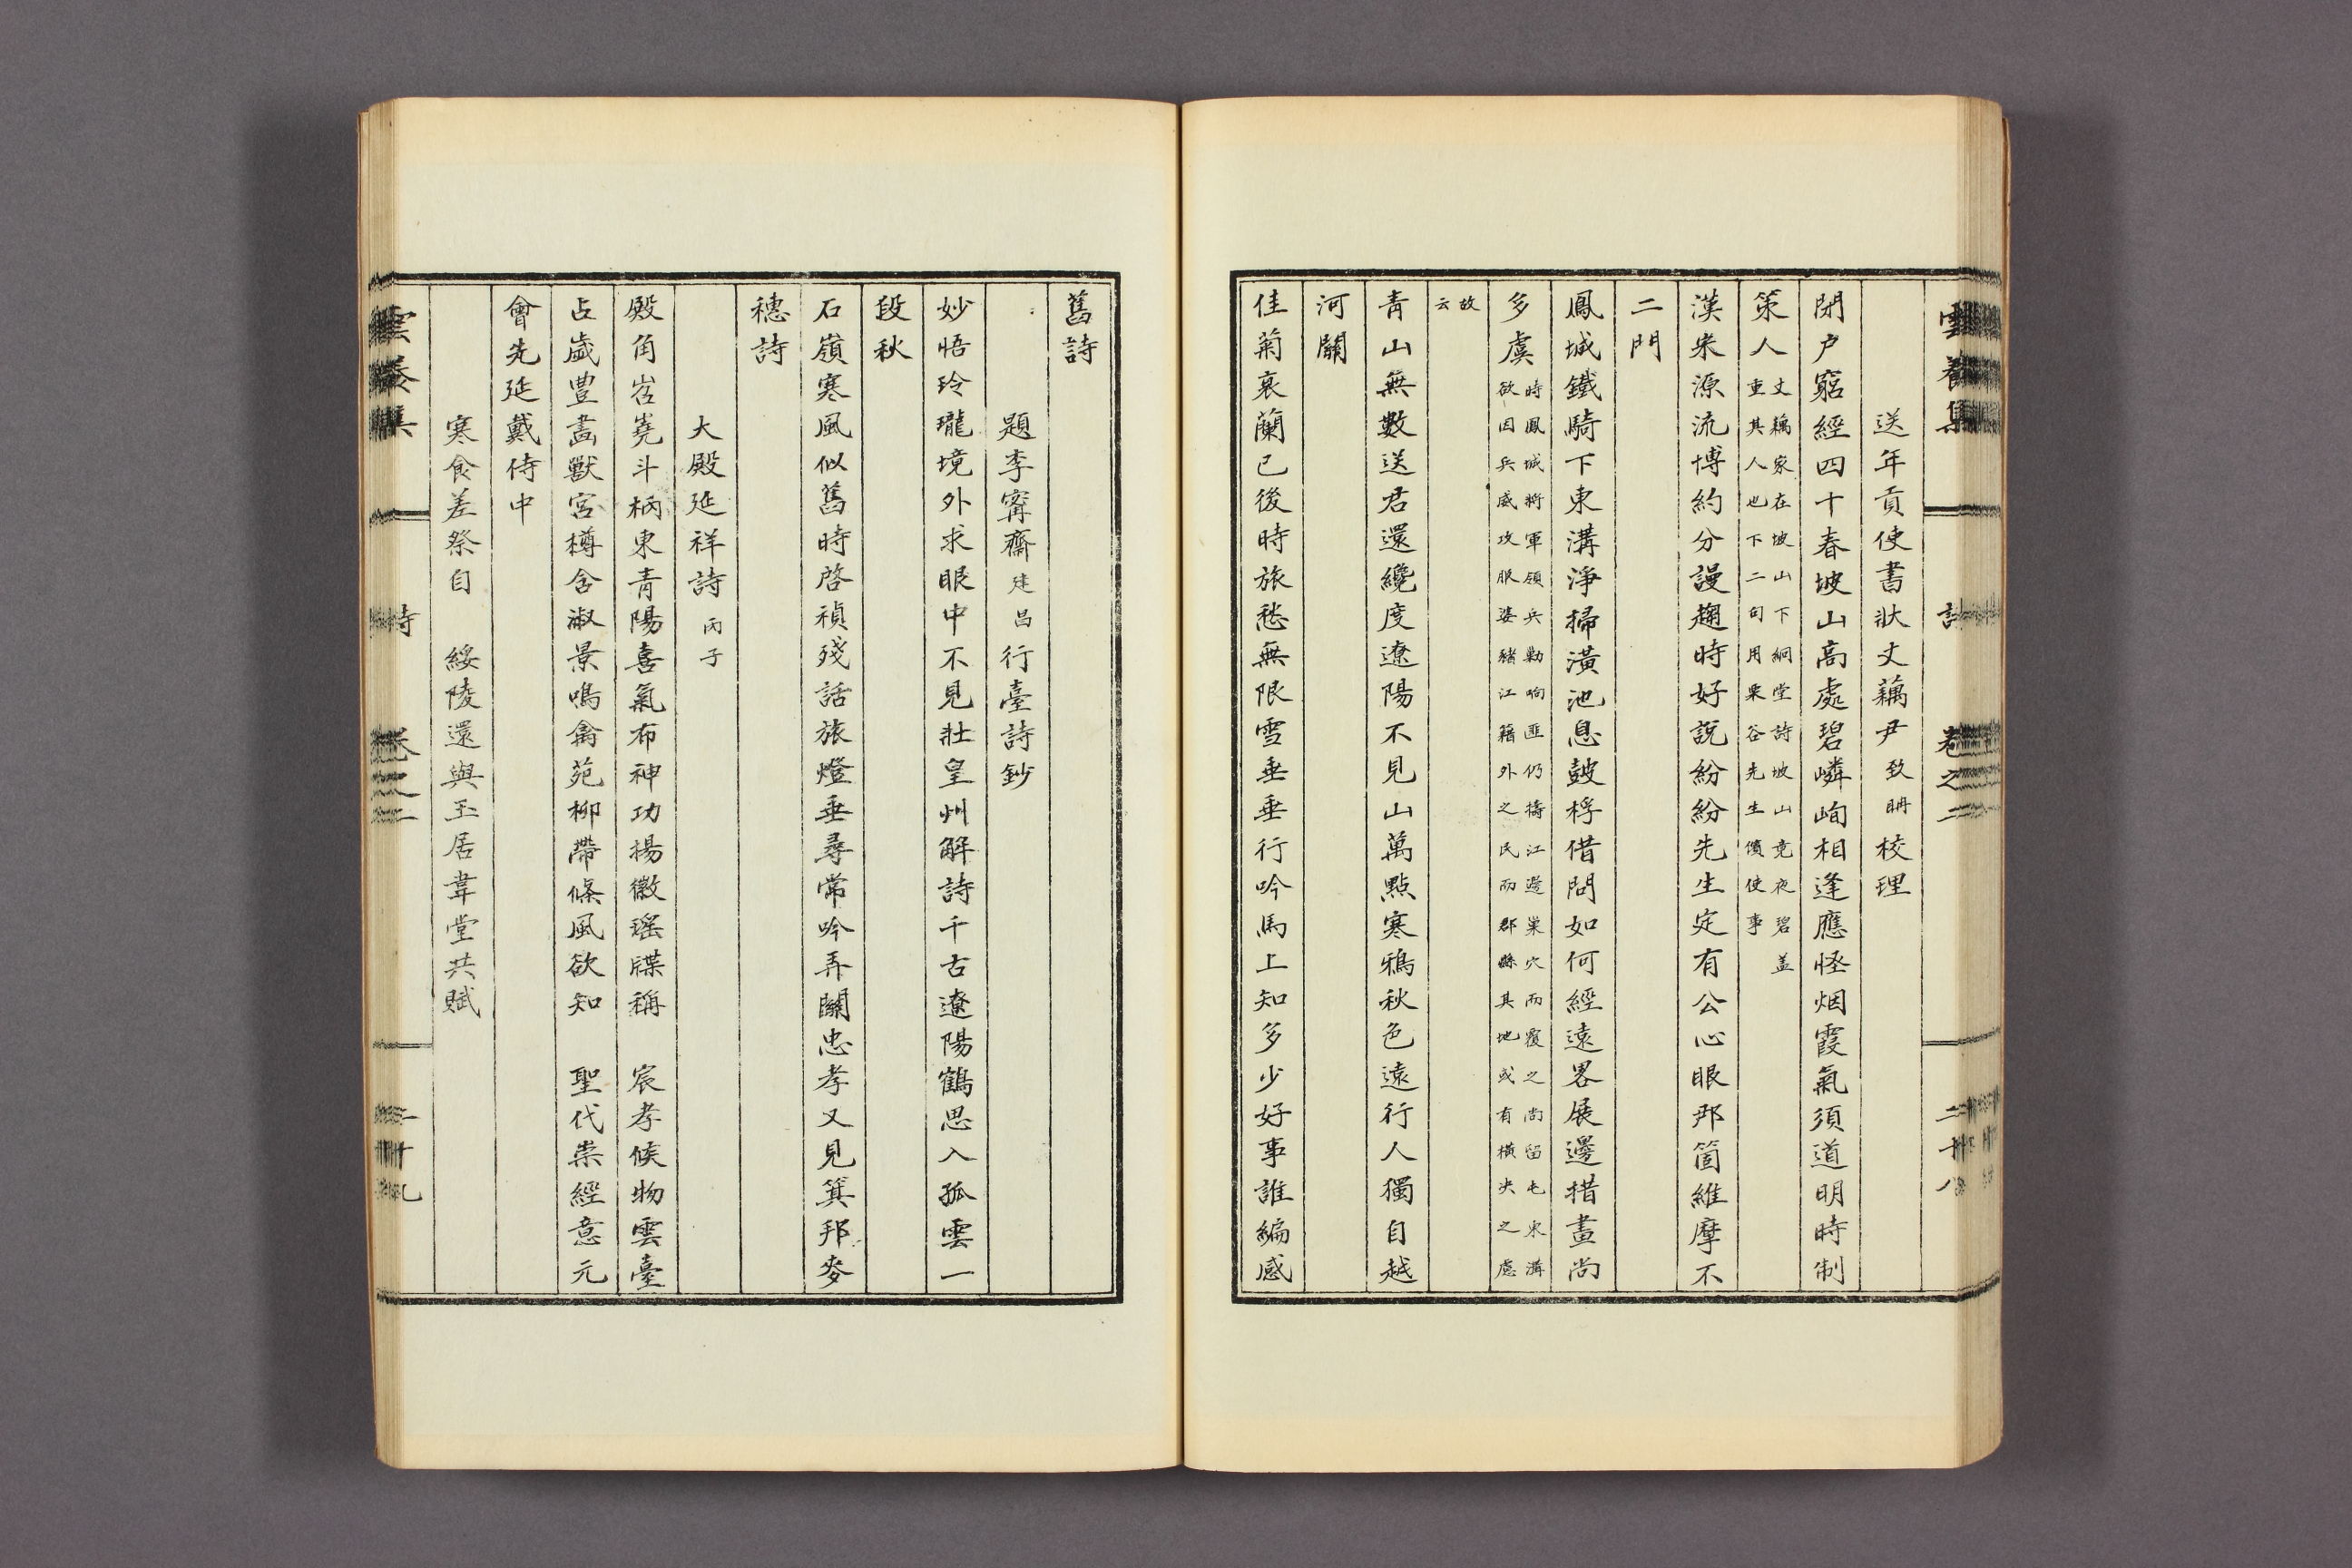 雲養集 詩 卷之二 二十八
送年貢使書狀丈藕尹致聃校理
閉户窮經四十春坡山高處碧嶙峋相逢應怪烟霞氣須道明時制
策人丈藕家在坡山下絅堂詩坡山竟夜碧盖
重其人也下二句用栗谷先生儐使事
漢宋源流博約分謾趨時好說紛紛先生定有公心眼那箇維摩不
二門
鳳城鐵騎下東溝淨掃潢池息鼓桴借問如何經遠畧展邊措畫尚
多虞時鳳城將軍領兵勦响匪仍擣江邊巢穴而覆之尚留屯東溝
欲因兵威攻服婆豬江籍外之民而郡縣其地或有橫决之慮
故
云
青山無數送君還纔度遼陽不見山萬點寒鴉秋色遠行人獨自越
河關
佳菊衰蘭已後時旅愁無限雪垂垂行吟馬上知多少好事誰編感
舊詩
題李寗齋建昌行臺詩鈔
妙悟玲瓏境外求眼中不見壯皇州解詩千古遼陽鶴思入孤雲一
段秋
石嶺寒風似舊時啓禎殘話旅燈垂尋常吟弄關忠孝又見箕邦麥
穗詩
大殿延祥詩丙子
殿角岧嶤斗柄東青陽喜氣布神功揚徽瑤牒稱 宸孝候物雲臺
占歲豊畵獸宮樽含淑景鳴禽苑柳帶條風欲知 聖代崇經意元
會先延戴侍中
寒食差祭自 綏陵還與玉居韋堂共賦
雲養集 詩 卷之二 二十九